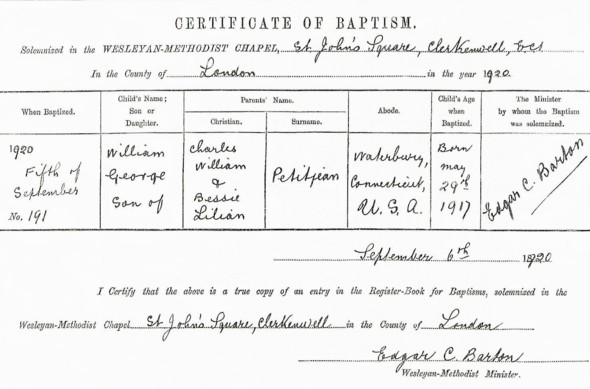 CERTIFICATE OF BAPTISM.
Solemnized in the WESLEYAN-METHODIST CHAPEL, St. John's Square, Clerkenwell, E.C.1
In the County of London in the year 1920.
When Baptized.
Child's Name;
Son or
Daughter.
Parents' Name.
Christian.
Surname.
Abode.
Child's Age
when
Baptized.
The Minister
by whom the Baptism
was solemnized.
1920
Fifth of
September
No. 191
William
George
Son of
Charles
William
&
Bessie
Lilian
Petitjean
Waterbury,
Connecticut,
U.S.A.
Born
May
29th
1917
Edgar C. Barton
September 6th 1920
I Certify that the above is a true copy of an entry in the Register-Book for Baptisms, solemnized in the
Wesleyan-Methodist Chapel St John's Square, Clerkenwell in the County of London
Edgar C. Barton
Wesleyan-Methodist Minister.